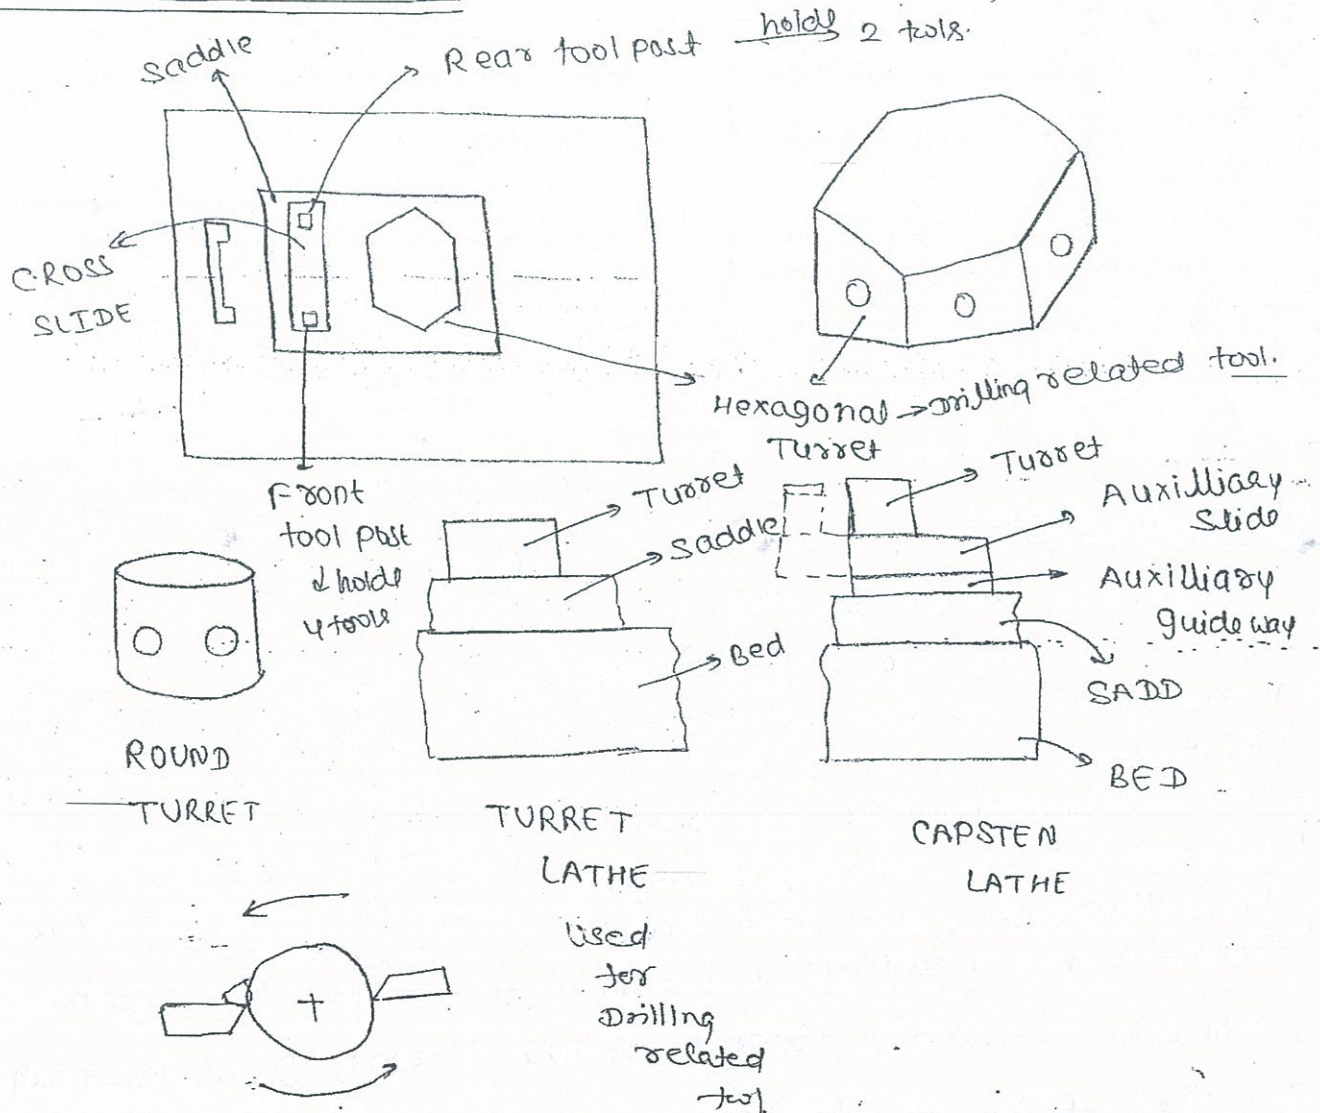 Saddle
Rear tool post holds 2 tols.
CROSS
SLIDE
Hexagonal → Drilling related tool.
Turret
Front
tool post
& holds
4 tools
Turret
Saddle
Bed
Turret
Auxilliary
Slide
Auxilliary
guideway
SADD
BED
ROUND
TURRET
TURRET
LATHE
CAPSTEN
LATHE
Used
for
Drilling
related
tol